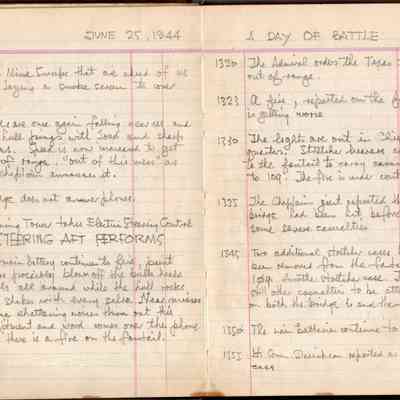 JUNE 25, 1944
Mine Sweeps that are ahead of us
laying a smoke screen to cover
are once again falling near us and
hull rings with loud and sharp
Speed is now increased to get
of range, "out of this mess" as
chaplain announces it.
does not answer phone.
Tower takes Electric Steering Control
STEERING AFT PERFORMS
main battery continues to fire, paint
blown off the bulk heads
all around while the hull rocks
shakes with every salvo. Near misses
shattering noises then out this
and word comes over the phone
there is a fire on the fantail.
A DAY OF BATTLE
1320 The Admiral orders the Texas
out of range.
1323 A fire, reported on the
is getting worse
1330 The lights are out in
quarters. Stretcher bearers
to the fantail to carry
to 109. The fire is under cont
1335 The Chaplain just reported th
bridge had been hit
some severe casualties
1345 Two additional stretcher cases
been removed from the
109. Another stretcher case
still other casualties to be
on both the bridge and
1350 The main batteries continue to
1355 Lt. Com. reported as
case